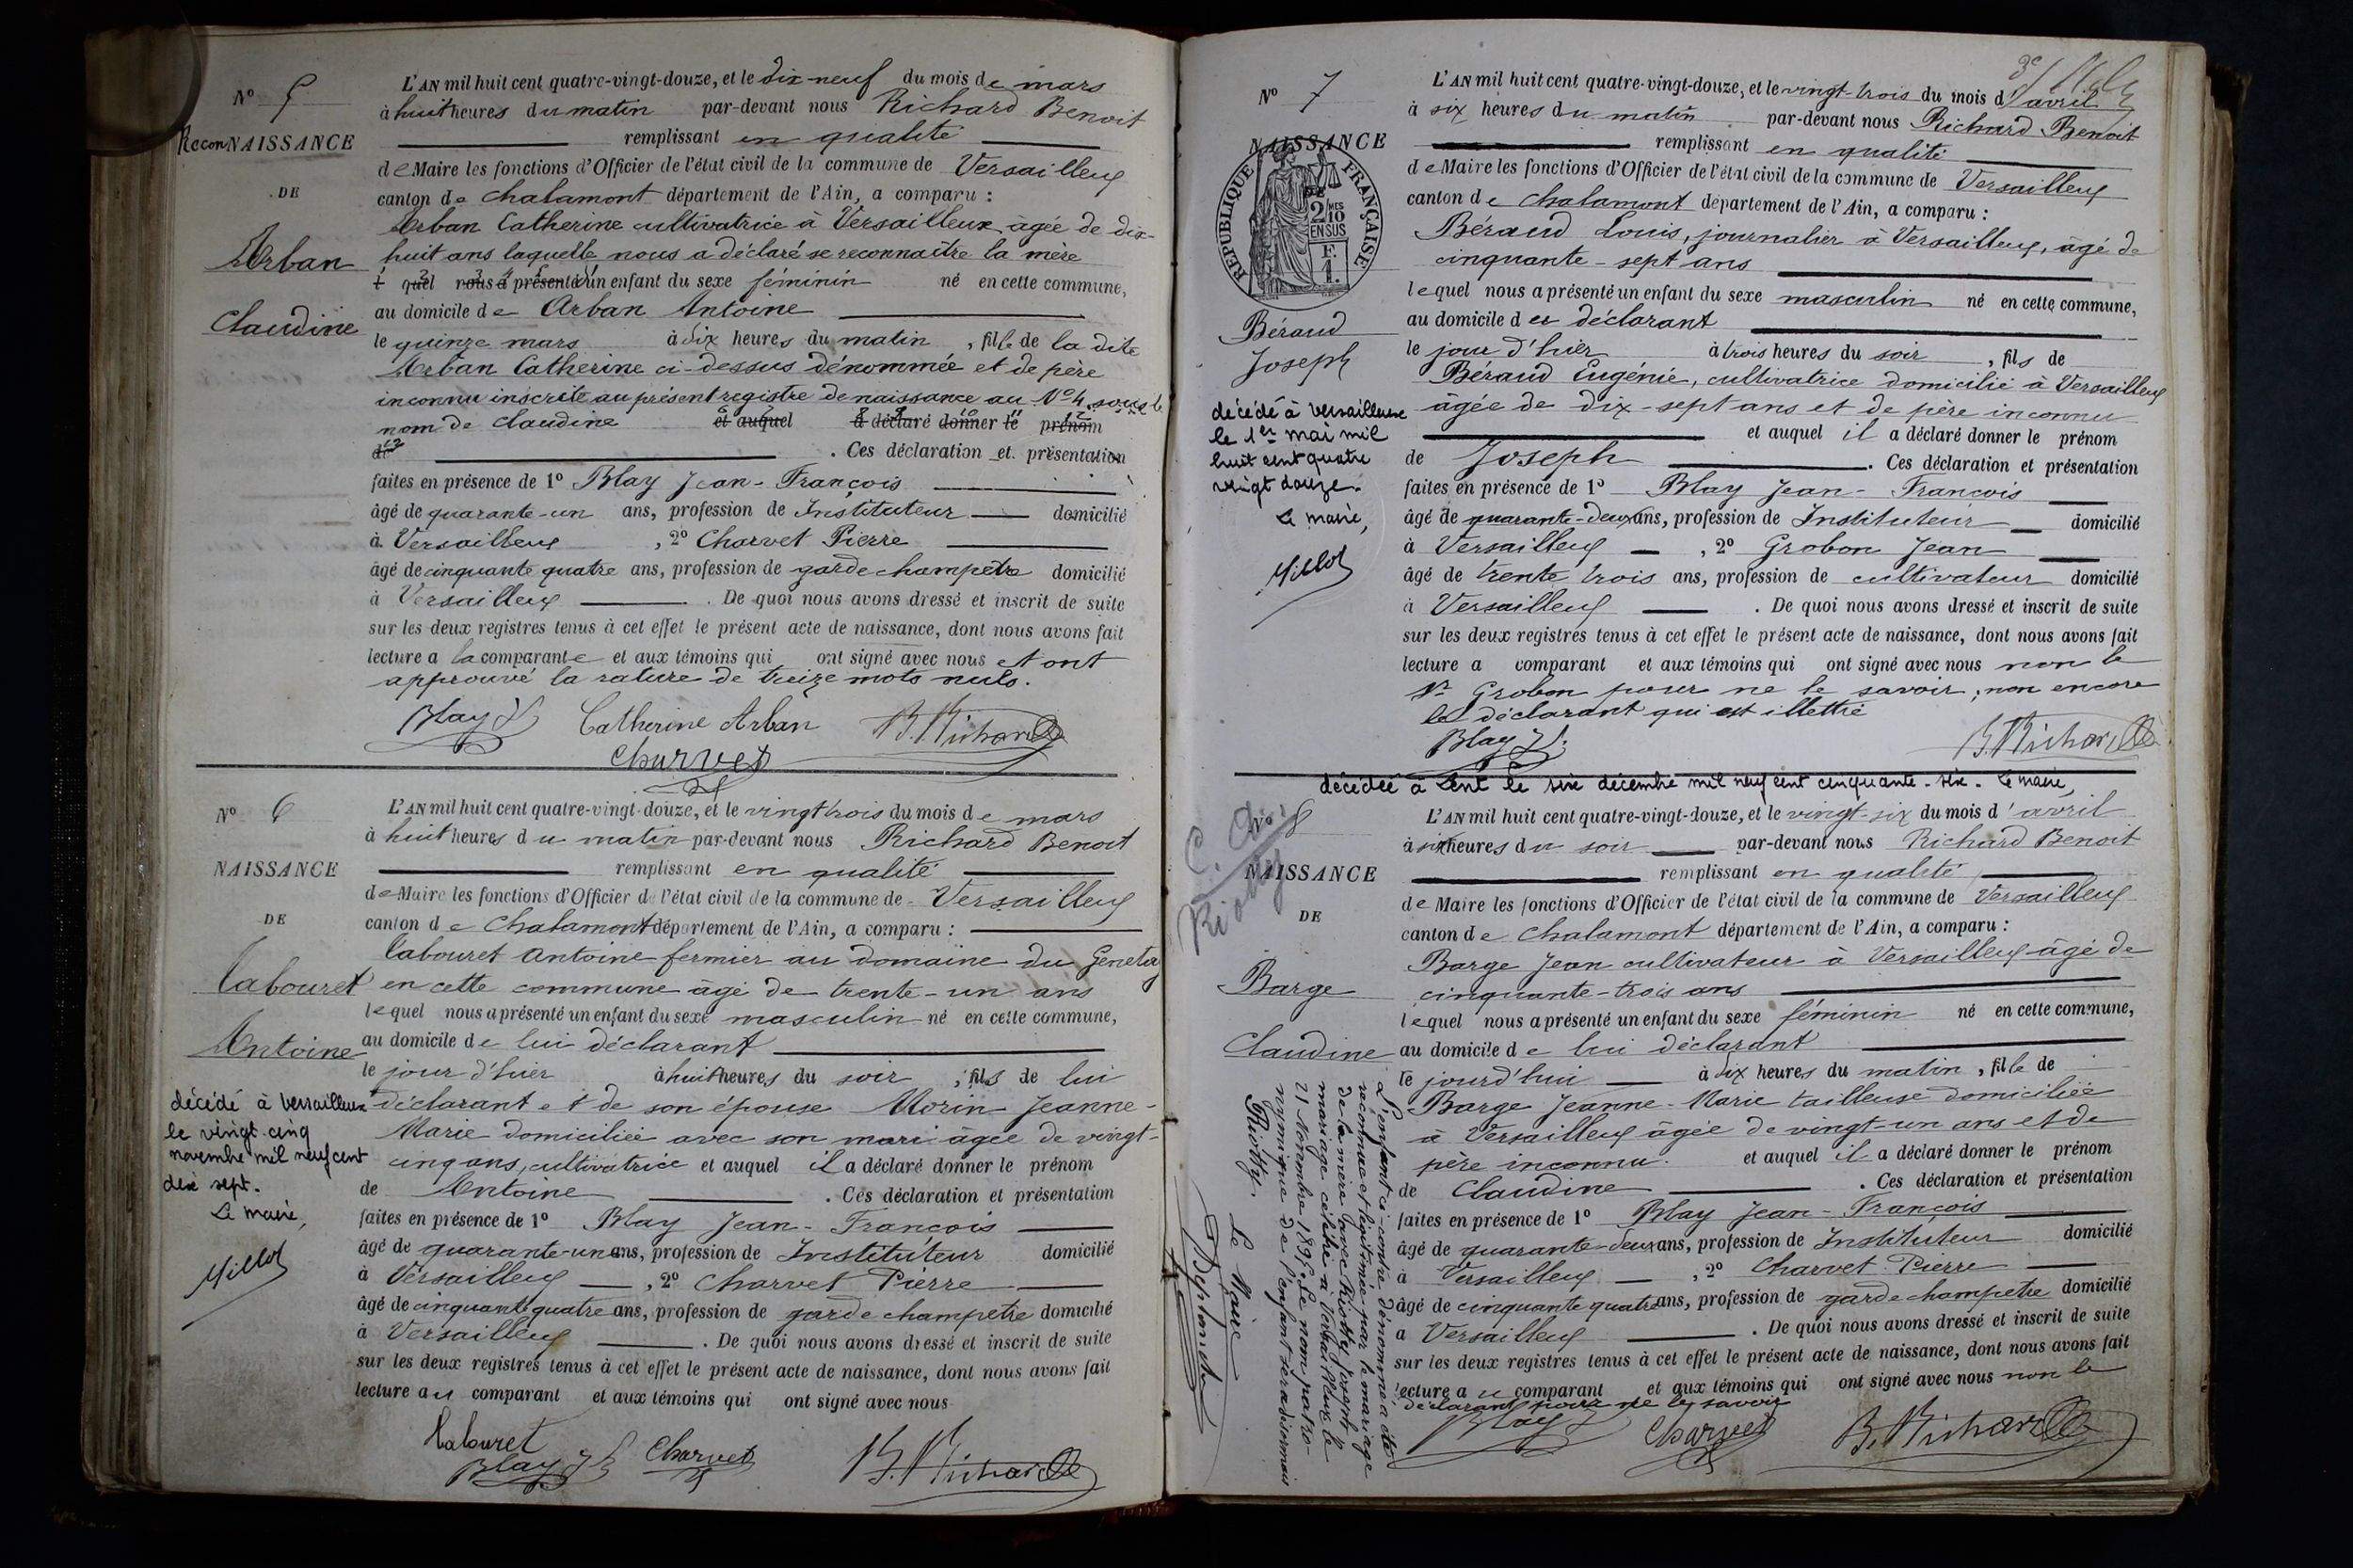 N° 5
ReconNAISSANCE
DE
Arban
Claudine
L'AN mil huit cent quatre-vingt-douze, et le dix-neuf du mois de mars
à huit heures du matin par-devant nous Richard Benoit
remplissant en qualité
de Maire les fonctions d'Officier de l'état civil de la commune de Versailleux
canton de Chalamont département de l'Ain, a comparu :
Arban Catherine cultivatrice à Versailleux âgée de dix-
huit ans laquelle nous a déclaré se reconnaître la mère
l quel nous a présenté d'un enfant du sexe féminin né en cette commune,
au domicile de Arban Antoine
le quinze mars à dix heures du matin, fille de la dite
Arban Catherine ci-dessus dénommée et de père
inconnu inscrite au présent registre de naissance au N° 4 sous le
nom de Claudine et auquel a déclaré donner le prénom
de . Ces déclaration et présentation
faites en présence de 1° Blay Jean-François
âgé de quarante-un ans, profession de Instituteur domicilié
à Versailleux, 2° Charvet Pierre
âgé de cinquante quatre ans, profession de garde champetre domicilié
à Versailleux. De quoi nous avons dressé et inscrit de suite
sur les deux registres tenus à cet effet le présent acte de naissance, dont nous avons fait
lecture a la comparante et aux témoins qui ont signé avec nous et ont
approuvé la rature de treize mots nuls.
Blay Jf Catherine Arban B. Richard
Charvet
N° 6
NAISSANCE
DE
Cabouret
Antoine
décédé à Versailleux
le vingt-cinq
novembre mil neuf cent
dix sept.
Le maire,
Millot
L'AN mil huit cent quatre-vingt-douze, et le vingt trois du mois de mars
à huit heures du matin par-devant nous Richard Benoit
remplissant en qualité
de Maire les fonctions d'Officier de l'état civil de la commune de Versailleux
canton de Chalamont département de l'Ain, a comparu :
Cabouret Antoine fermier au domaine du Genetay
en cette commune âgé de trente-un ans
lequel nous a présenté un enfant du sexe masculin né en cette commune,
au domicile de lui déclarant
le jour d'hier à huit heures du soir, fils de lui
déclarant et de son épouse Morin Jeanne-
Marie domiciliée avec son mari âgée de vingt-
cinq ans, cultivatrice et auquel il a déclaré donner le prénom
de Antoine . Ces déclaration et présentation
faites en présence de 1° Blay Jean-François
âgé de quarante-un ans, profession de Instituteur domicilié
à Versailleux, 2° Charvet Pierre
âgé de cinquante quatre ans, profession de garde champetre domicilié
à Versailleux. De quoi nous avons dressé et inscrit de suite
sur les deux registres tenus à cet effet le présent acte de naissance, dont nous avons fait
lecture au comparant et aux témoins qui ont signé avec nous
Cabouret
Blay Jf Charvet B. Richard
N° 7
NAISSANCE
RÉPUBLIQUE FRANÇAISE
2 MES
10
EN SUS
F.
1.
Béraud
Joseph
décédé à Versailleux
le 1er mai mil
huit cent quatre
vingt douze.
Le maire,
Millot
L'AN mil huit cent quatre-vingt-douze, et le vingt-trois du mois d'avril
à six heures du matin par-devant nous Richard Benoit
remplissant en qualité
de Maire les fonctions d'Officier de l'état civil de la commune de Versailleux
canton de Chalamont département de l'Ain, a comparu :
Béraud Louis, journalier à Versailleux, âgé de
cinquante-sept ans
lequel nous a présenté un enfant du sexe masculin né en cette commune,
au domicile du déclarant
le jour d'hier à trois heures du soir, fils de
Béraud Eugénie, cultivatrice domicilié à Versailleux
âgée de dix-sept ans et de père inconnu
et auquel il a déclaré donner le prénom
de Joseph . Ces déclaration et présentation
faites en présence de 1° Blay Jean-François
âgé de quarante-deux ans, profession de Instituteur domicilié
à Versailleux, 2° Grobon Jean
âgé de trente trois ans, profession de cultivateur domicilié
à Versailleux. De quoi nous avons dressé et inscrit de suite
sur les deux registres tenus à cet effet le présent acte de naissance, dont nous avons fait
lecture a comparant et aux témoins qui ont signé avec nous non le
Sr Grobon pour ne le savoir, non encore
le déclarant qui est illettré
Blay Jf. B. Richard
décédée à Lent le six décembre mil neuf cent cinquante-six. Le maire,
N° 8
NAISSANCE
DE
Riotty
Barge
Claudine
L'AN mil huit cent quatre-vingt-douze, et le vingt-six du mois d'avril
à six heures du soir par-devant nous Richard Benoit
remplissant en qualité
de Maire les fonctions d'Officier de l'état civil de la commune de Versailleux
canton de Chalamont département de l'Ain, a comparu :
Barge Jean cultivateur à Versailleux âgé de
cinquante-trois ans
lequel nous a présenté un enfant du sexe féminin né en cette commune,
au domicile de lui déclarant
le jourd'hui à dix heures du matin, fille de
Barge Jeanne-Marie tailleuse domiciliée
à Versailleux âgée de vingt-un ans et de
père inconnu. et auquel il a déclaré donner le prénom
de Claudine . Ces déclaration et présentation
faites en présence de 1° Blay Jean-François
âgé de quarante-deux ans, profession de Instituteur domicilié
à Versailleux, 2° Charvet Pierre
âgé de cinquante quatre ans, profession de garde champetre domicilié
a Versailleux. De quoi nous avons dressé et inscrit de suite
sur les deux registres tenus à cet effet le présent acte de naissance, dont nous avons fait
lecture au comparant et aux témoins qui ont signé avec nous non le
déclarant pour ne le savoir
Blay Jf Charvet B. Richard
L'enfant ci-contre dénommé a été
reconnue et légitimée par le mariage
de la mère avec Riotty Joseph
mariage célébré à Versailleux le
21 Novembre 1895. Le nom patro-
nymique de l'enfant sera désormais
Riotty. Le Maire